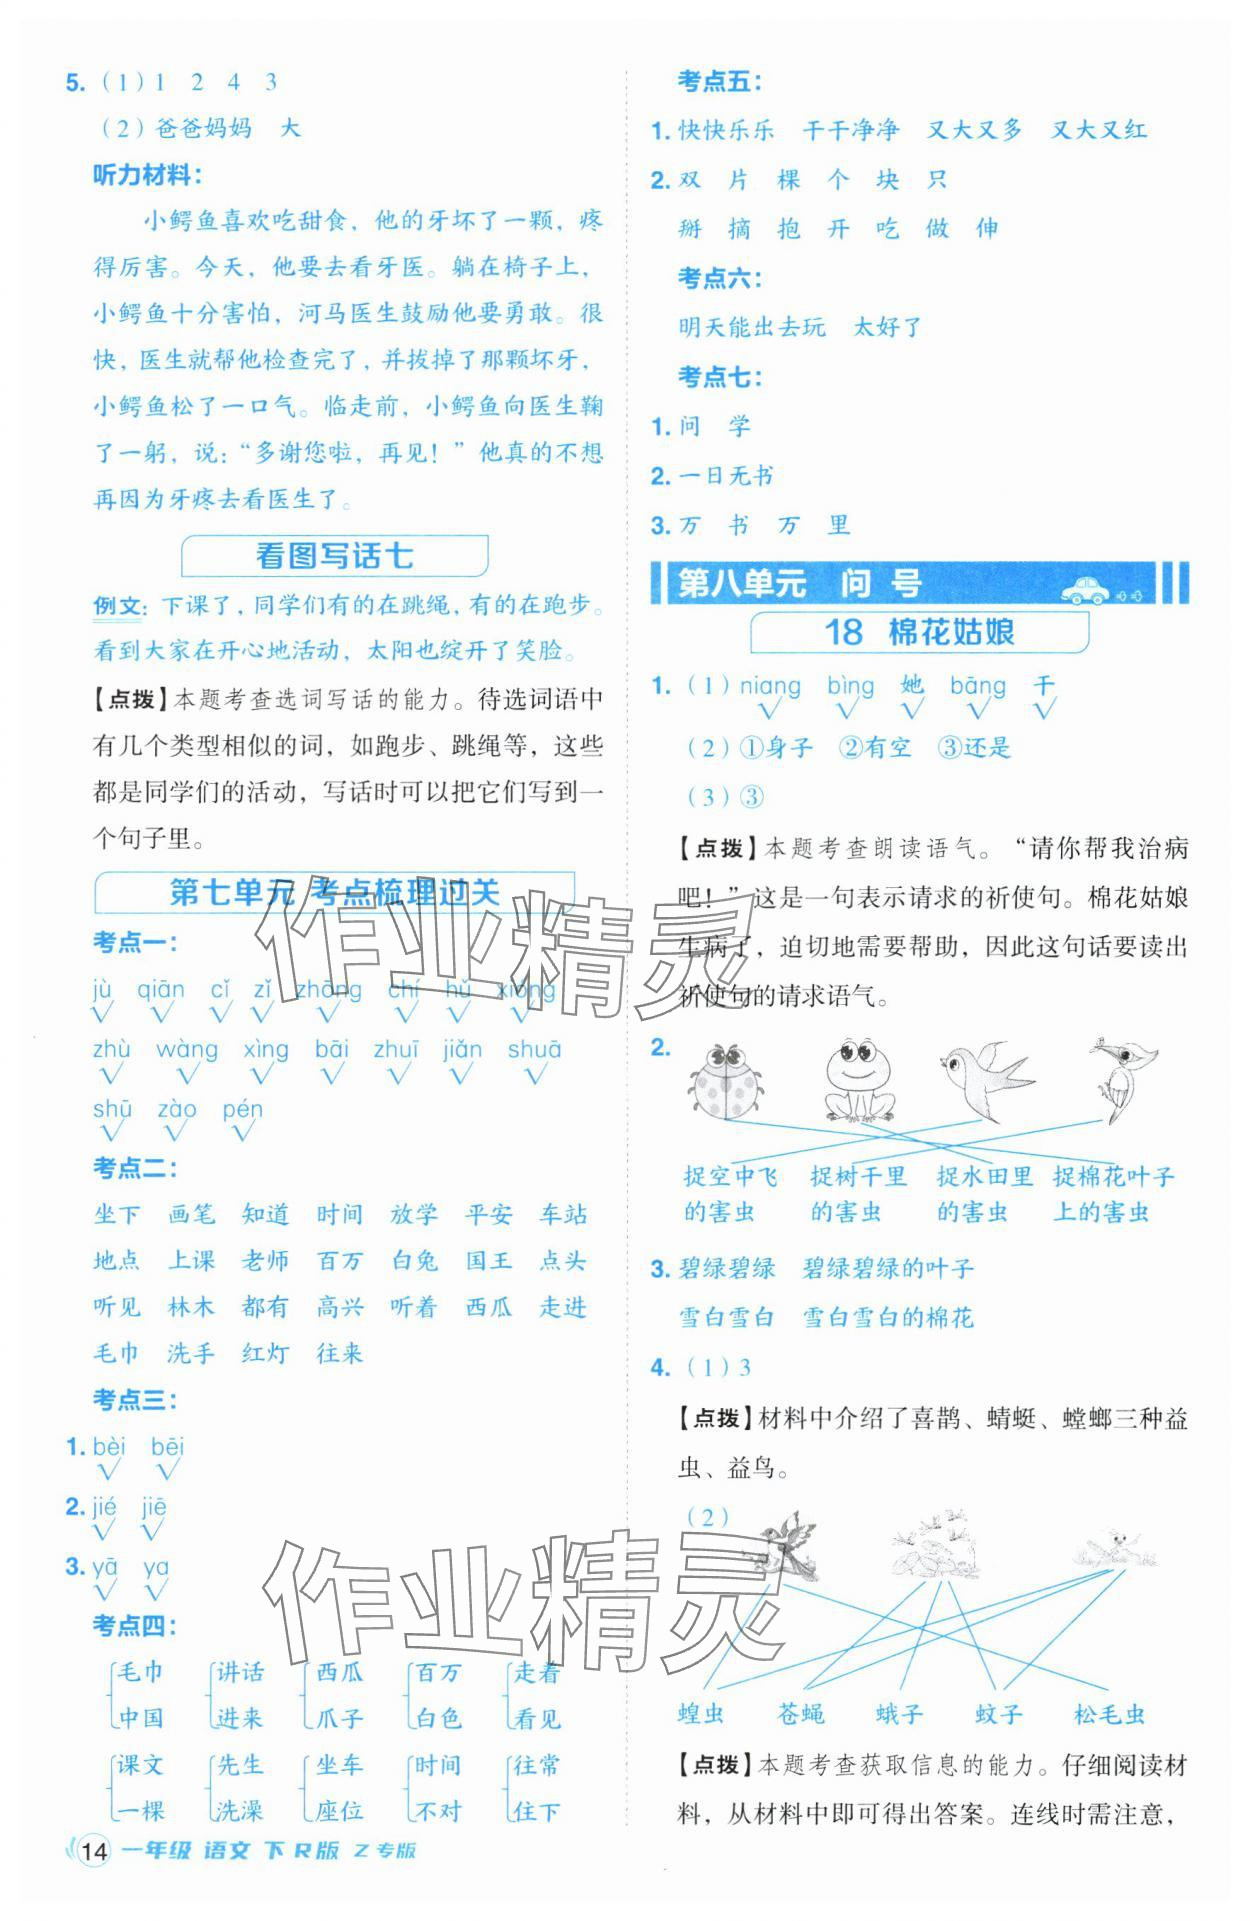 5. (1)1 2 4 3
(2)爸爸妈妈 大
听力材料：
小鳄鱼喜欢吃甜食，他的牙坏了一颗，疼
得厉害。今天，他要去看牙医。躺在椅子上，
小鳄鱼十分害怕，河马医生鼓励他要勇敢。很
快，医生就帮他检查完了，并拔掉了那颗坏牙，
小鳄鱼松了一口气。临走前，小鳄鱼向医生鞠
了一躬，说：“多谢您啦，再见！”他真的不想
再因为牙疼去看医生了。
看图写话七
例文：下课了，同学们有的在跳绳，有的在跑步。
看到大家在开心地活动，太阳也绽开了笑脸。
【点拨】本题考查选词写话的能力。待选词语中
有几个类型相似的词，如跑步、跳绳等，这些
都是同学们的活动，写话时可以把它们写到一
个句子里。
第七单元 考点梳理过关
考点一：
jù qiān cǐ zǐ zhōng chí hǔ xióng
√ √ √ √ √ √ √ √
zhù wàng xìng bāi zhuī jiǎn shuā
√ √ √ √ √ √ √
shū zào pén
√ √ √
考点二：
坐下 画笔 知道 时间 放学 平安 车站
地点 上课 老师 百万 白兔 国王 点头
听见 林木 都有 高兴 听着 西瓜 走进
毛巾 洗手 红灯 往来
考点三：
1. bèi bēi
√ √
2. jié jiē
√ √
3. yā ya
√ √
考点四：
毛巾 讲话 西瓜 百万 走着
中国 进来 爪子 白色 看见
课文 先生 坐车 时间 往常
一棵 洗澡 座位 不对 住下
14 一年级 语文 下 R版 Z专版
考点五：
1. 快快乐乐 干干净净 又大又多 又大又红
2. 双 片 棵 个 块 只
掰 摘 抱 开 吃 做 伸
考点六：
明天能出去玩 太好了
考点七：
1. 问 学
2. 一日无书
3. 万 书 万 里
第八单元 问号
18 棉花姑娘
1. (1)niang bìng 她 bāng 干
√ √ √ √ √
(2)①身子 ②有空 ③还是
(3)③
【点拨】本题考查朗读语气。“请你帮我治病
吧！”这是一句表示请求的祈使句。棉花姑娘
生病了，迫切地需要帮助，因此这句话要读出
祈使句的请求语气。
2.
捉空中飞 捉树干里 捉水田里 捉棉花叶子
的害虫 的害虫 的害虫 上的害虫
3. 碧绿碧绿 碧绿碧绿的叶子
雪白雪白 雪白雪白的棉花
4. (1)3
【点拨】材料中介绍了喜鹊、蜻蜓、螳螂三种益
虫、益鸟。
(2)
蝗虫 苍蝇 蛾子 蚊子 松毛虫
【点拨】本题考查获取信息的能力。仔细阅读材
料，从材料中即可得出答案。连线时需注意，
作业精灵
作业精灵